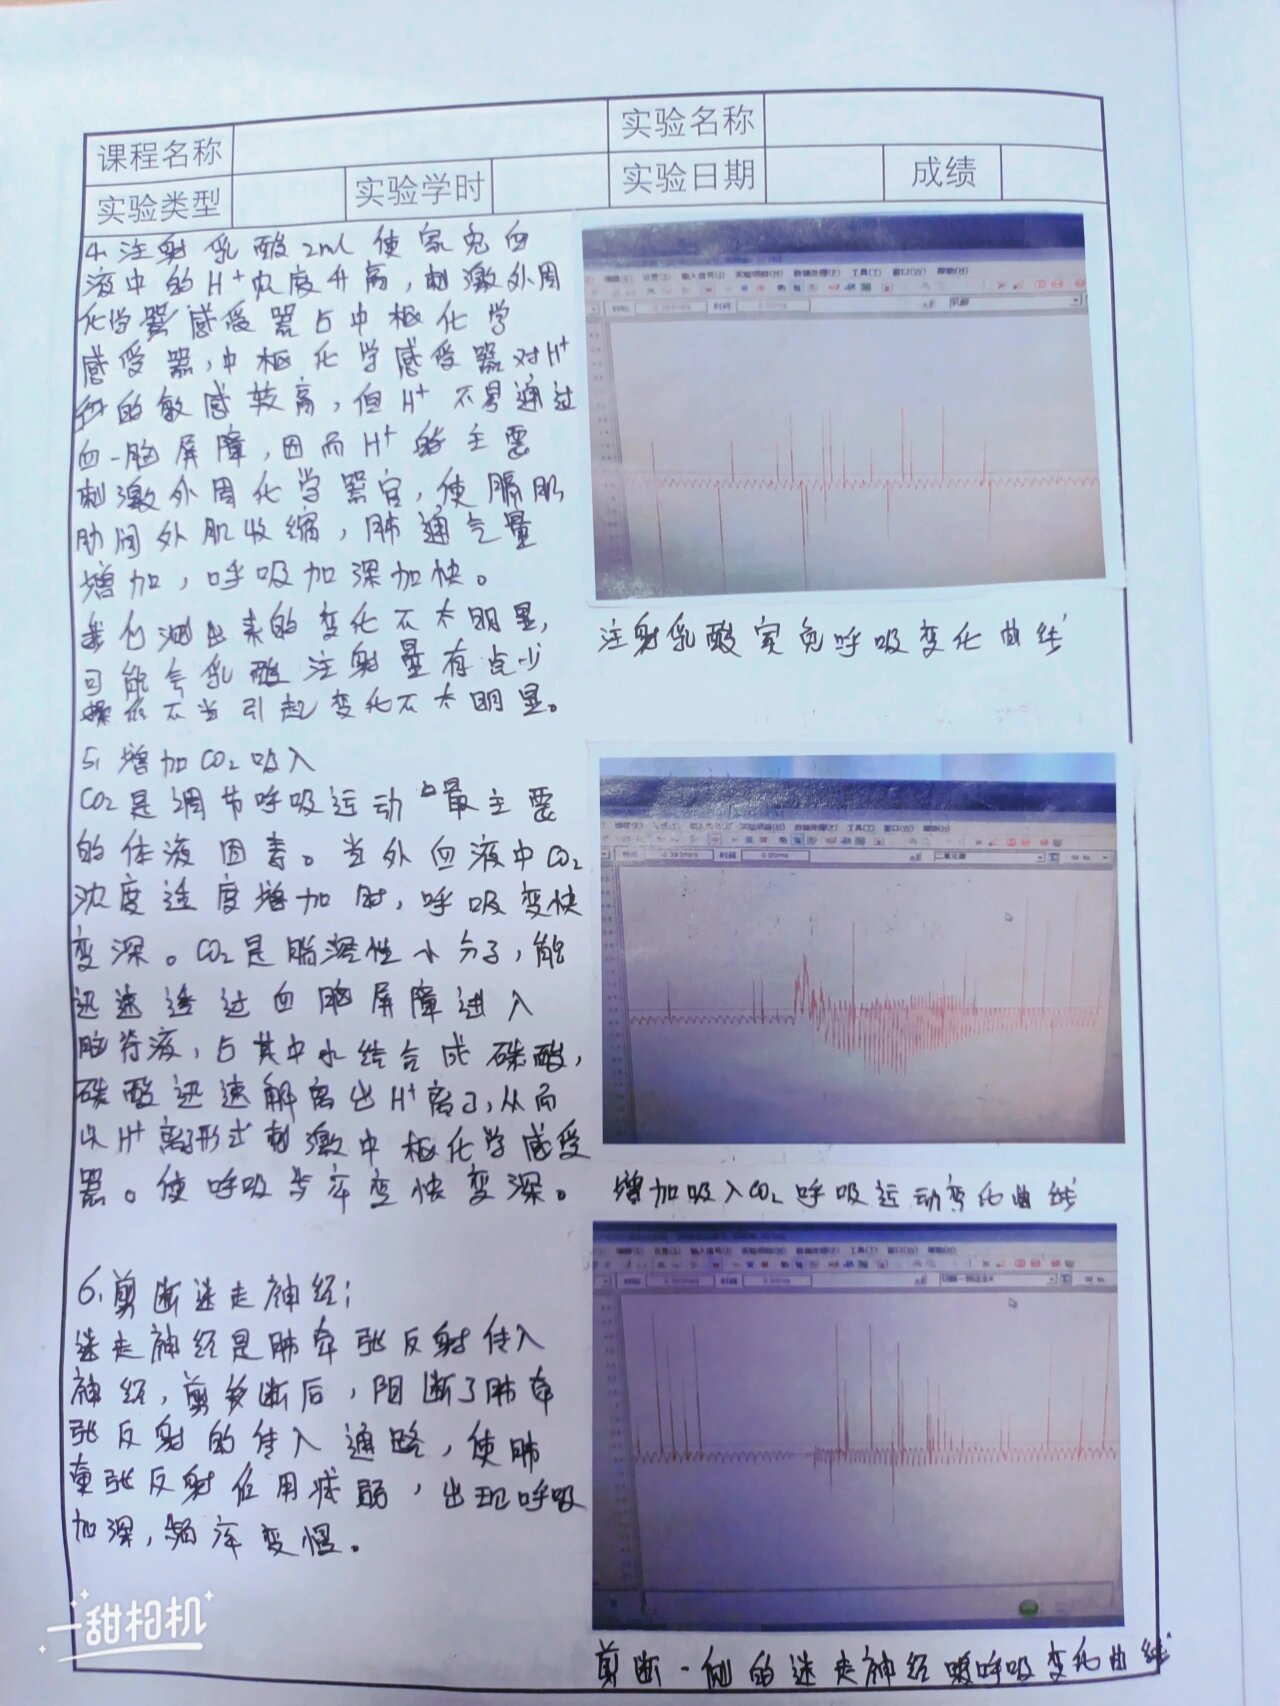 课程名称
实验名称
实验类型
实验学时
实验日期
成绩
4.注射乳酸2ml使家兔血
液中的H⁺浓度升高，刺激外周
化学器感受器与中枢化学
感受器，中枢化学感受器对H⁺
的敏感较高，但H⁺不易通过
血-脑屏障，因而H⁺的主要
刺激外周化学器官，使膈肌
肋间外肌收缩，肺通气量
增加，呼吸加深加快。
我们测出来的变化不太明显，
可能会乳酸注射量有点少
操作不当引起变化不太明显。
注射乳酸家兔呼吸变化曲线
5.增加CO₂吸入
CO₂是调节呼吸运动中最主要
的体液因素。当外血液中CO₂
浓度适度增加时，呼吸变快
变深。CO₂是脂溶性小分子，能
迅速透过血脑屏障进入
脑脊液，与其中水结合成碳酸，
碳酸迅速解离出H⁺离子，从而
以H⁺离子形式刺激中枢化学感受
器。使呼吸频率变快变深。
增加吸入CO₂呼吸运动变化曲线
6.剪断迷走神经；
迷走神经是肺牵张反射传入
神经，剪断后，阻断了肺牵
张反射的传入通路，使肺
牵张反射作用减弱，出现呼吸
加深，频率变慢。
剪断一侧的迷走神经呼吸变化曲线
一甜相机